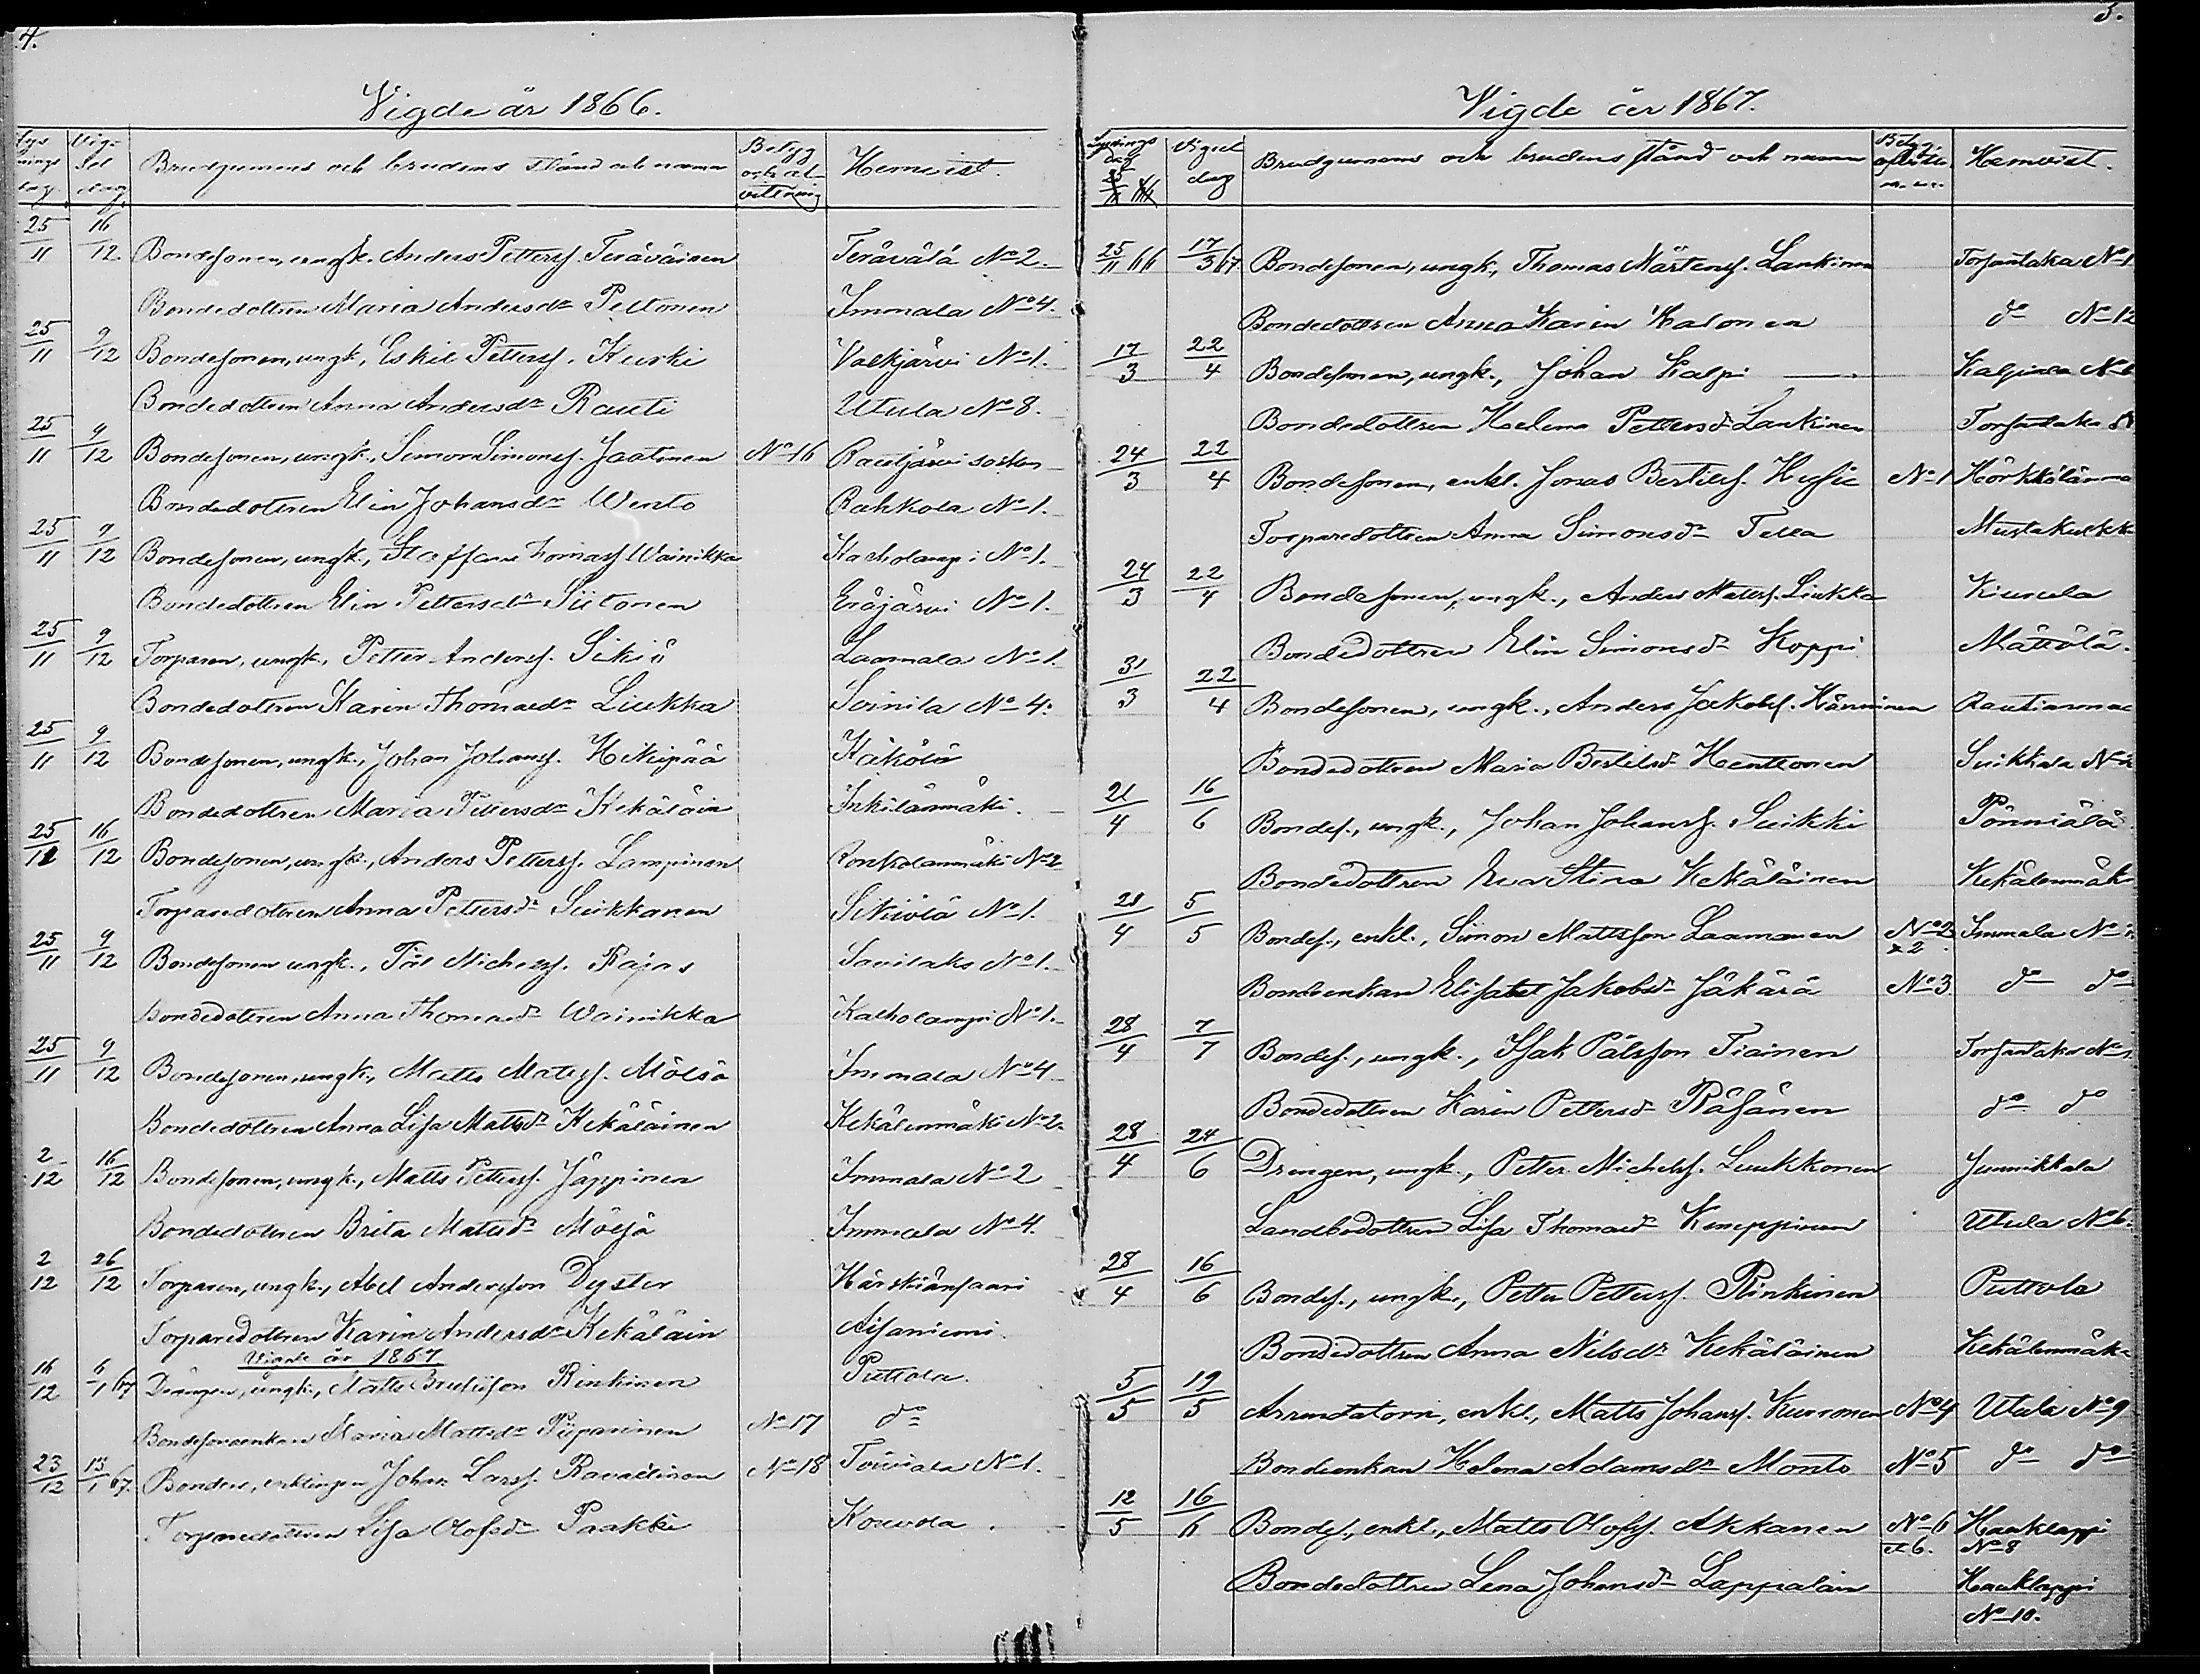 4.
Vigde år 1866.
Lysningsdag Vigseldag Brudgumens och brudens stånd och namn Betyg och attestering Hemvist.
25/11 16/12. Bondesonen, ungk. Anders Petterss. Teräväinen Terävälä No 2.
Bondedottren Maria Andersdr Peltonen Immala No 4.
25/11 9/12 Bondesonen, ungk., Eskil Petterss. Kurki Valkjärvi No 1.
Bondedottren Anna Andersdr Rauti Utula No 8.
25/11 9/12 Bondesonen, ungk., Simon Simonss. Jaatinen No 16 Rautjärvi socken
Bondedottren Elin Johansdr Wento Rahkola No 1.
25/11 9/12 Bondesonen, ungk., Staffan Thomass. Wainikka Kaiholampi No 1.
Bondedottren Elin Pettersdr Siitonen Eräjärvi No 1.
25/11 9/12 Torparen, ungk., Petter Anderss. Sikiö Laamala No 1.
Bondedottren Karin Thomasdr Liukka Soinila No 4.
25/11 9/12 Bondesonen, ungk., Johan Johanss. Heikipää Käkölä
Bondedottren Maria Pettersdr Kekäläin Inkilänmäki.
25/11 16/12 Bondesonen, ungk., Anders Petterss. Lampinen Ronkolanmäki No 2
Torparedottren Anna Pettersdr Suikkanen Sikiölä No 1.
25/11 9/12 Bondesonen ungk., Pål Michelss. Rajas Savilaks No 1.
Bondedottren Anna Thomasdr Wainikka Kaiholampi No 1.
25/11 9/12 Bondesonen, ungk., Matts Matss. Mölsä Immala No 4
Bondedottren Anna Lisa Mattsdr Kekäläinen Kekälenmäki No 2.
2/12 16/12 Bondesonen, ungk., Matts Petterss. Jäppinen Immala No 2
Bondedottren Brita Matsdr Mölsä Immala No 4.
2/12 26/12 Torparen, ungk., Abel Andersson Dyster Härskiänsaari
Torparedottren Karin Andersdr Kekäläin Äisäniemi.
Vigde år 1867
16/12 6/1 67 Drängen, ungk., Matts Rinkinen Puttola.
Bondesonenkan Maria Mattsdr Piiparinen No 17 do
23/12 13/1 67. Bonden, enklingen Johan Larss. No 18 No 1.
Torparedottren Lisa Olofsdr Paakki Kouvola.
5.
Vigde år 1867.
Lysnings dag Vigsel dag Brudgumens och brudens stånd och namn Hemvist.
25/11 66 17/3 67 Bondesonen, ungk., Thomas Mårtenss. Lankinen Torsantaka No 1
Bondedottren Anna Karin Kalonen do No 12
17/3 22/4 Bondesonen, ungk., Johan Kalpi Kalpiala No
Bondedottren Helena Pettersdr Lankinen Torsantaka
24/3 22/4 Bondesonen, enkl. Jonas Bertilss. Husu No 1 Härkkölänma
Torparedottren Anna Simonsdr Tella Mustakulkk
24/3 22/4 Bondesonen, ungk., Anders Matss. Liukka Kiurula
Bondedottren Elin Simonsdr Hoppi Mättölä.
31/3 22/4 Bondesonen, ungk., Anders Jakobss. Känninen Rautianma
Bondedottren Maria Bertilsdr Henttonen Suikkala No
21/4 16/6 Bondes., ungk., Johan Johanss. Suikki Pönniälä
Bondedottren Eva Stina Kekäläinen Kekälenmäk
28/4 5/5 Bondes., enkl., Simon Mattsson Laamanen No 2 Immala No
Bondenkan Elisabet Jakobsdr Jäkärä No 3. do do
28/4 7/7 Bondes., ungk., Isak Pålsson Tiainen Torsantaka No
Bondedottren Karin Pettersdr Räsänen do do
28/4 24/6 Drengen, ungk., Petter Michelss. Luukkonen Junnikkala
Landbodottren Lisa Thomasdr Kemppinen Utula No 6.
28/4 16/6 Bondes., ungk., Petter Petterss. Rinkinen Puttola
Bondedottren Anna Nilsdr Kekäläinen Kekälenmäk
5/5 19/5 Arrendatorn, enkl., Matts Johanss. Kuronen No 4 Utula No 9
Bondenkan Helena Adamsdr Monto No 5 do do
12/5 16/6 Bondes., enkl., Matts Olofss. Akkanen No 6 Hauklappi No 8
Bondedottren Lena Johansdr Lappalain Hauklappi No 10.